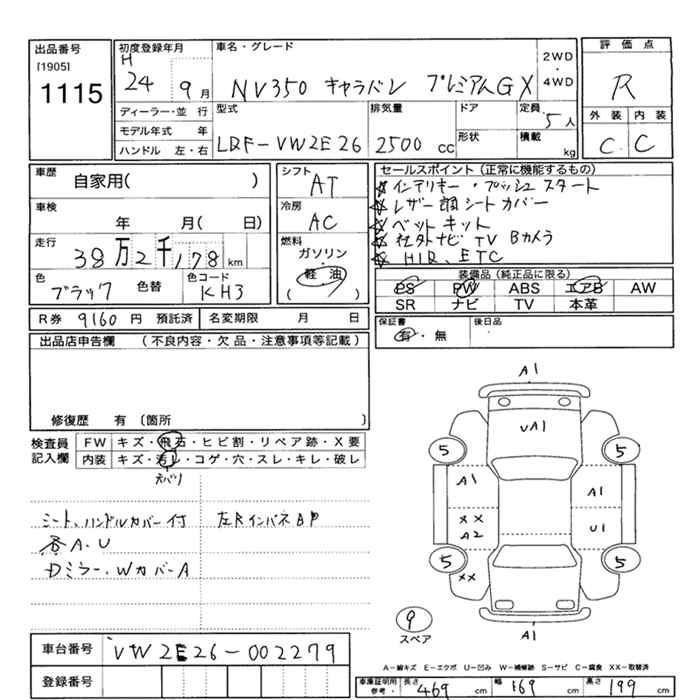 出品番号
[1905]
1115
初度登録年月
H
24 9 月
車名・グレード
NV350 キャラバン プレミアムGX
2WD
・
4WD
評 価 点
R
外 装 内 装
C C
ディーラー・並 行
モデル年式 年
ハンドル 左・右
型式
LDF-VW2E26
排気量
2500 cc
ドア
形状
定員
5 人
積載
kg
車歴
自家用( )
車検
年 月( 日)
走行
38 万 2 千,178 km
色
ブラック
色替
色コード
KH3
シフト
AT
冷房
AC
燃料
ガソリン
・
軽 油
( )
セールスポイント (正常に機能するもの)
☆インテリキー・プッシュスタート
☆レザー調シートカバー
☆ベットキット
☆社外ナビ TV Bカメラ
☆HID、ETC
装備品 (純正品に限る)
PS PW ABS エアB AW
SR ナビ TV 本革
R券 9160 円 預託済 名変期限 月 日
保証書
有・無
後日品
出品店申告欄 (不良内容・欠品・注意事項等記載)
修復歴 有 〔箇所 〕
検査員
記入欄
FW キズ・飛石・ヒビ割・リペア跡・X要
内装 キズ・汚レ・コゲ・穴・スレ・キレ・破レ
シート、ハンドルカバー付
左Rインパネ
各A.U
Dミラー、WカバーA
車台番号 VW2E26-002279
登録番号
A1
UA1
5
5
A1
A1
XX
A2
U1
5
5
XX
9
スペア
A1
A-線キズ E-エクボ U-凹み W-補修跡 S-サビ C-腐食 XX-取替済
車庫証明用
参考・
長さ 469 cm
幅 169 cm
高さ 199 cm